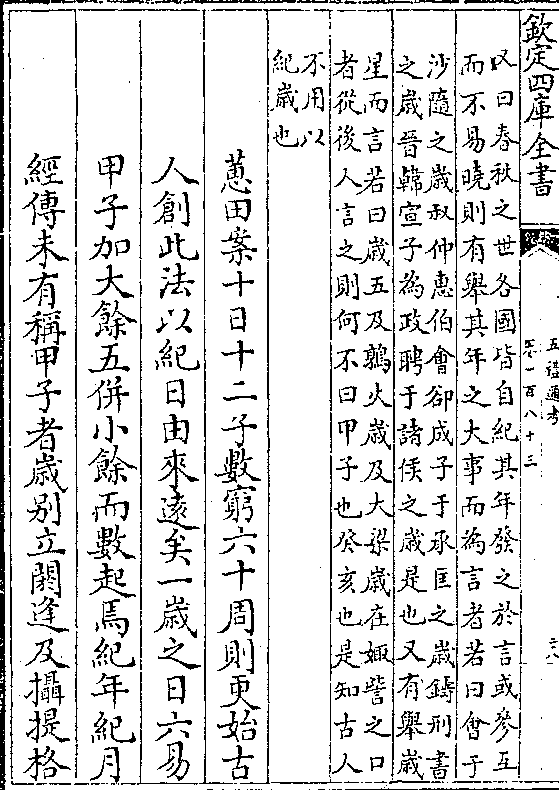 欽定四庫全書
五禮通考
卷一百八十三
六
又曰春秋之世各國皆自紀其年發之於言或參互
而不易曉則有舉其年之大事而為言者若曰會于
沙隨之歲叔仲惠伯會郤成子于承匡之歲鑄刑書
之歲晉韓宣子為政聘于諸侯之歲是也又有舉歲
星而言若曰歲五及鶉火歲及大梁歲在娵訾之口
者從後人言之則何不曰甲子也癸亥也是知古人
不用以
紀歲也
蕙田案十日十二子數窮六十周則更始古
人創此法以紀日由來逺矣一歲之日六易
甲子加大餘五併小餘而數起焉紀年紀月
經傳未有稱甲子者歲别立閼逢及攝提格